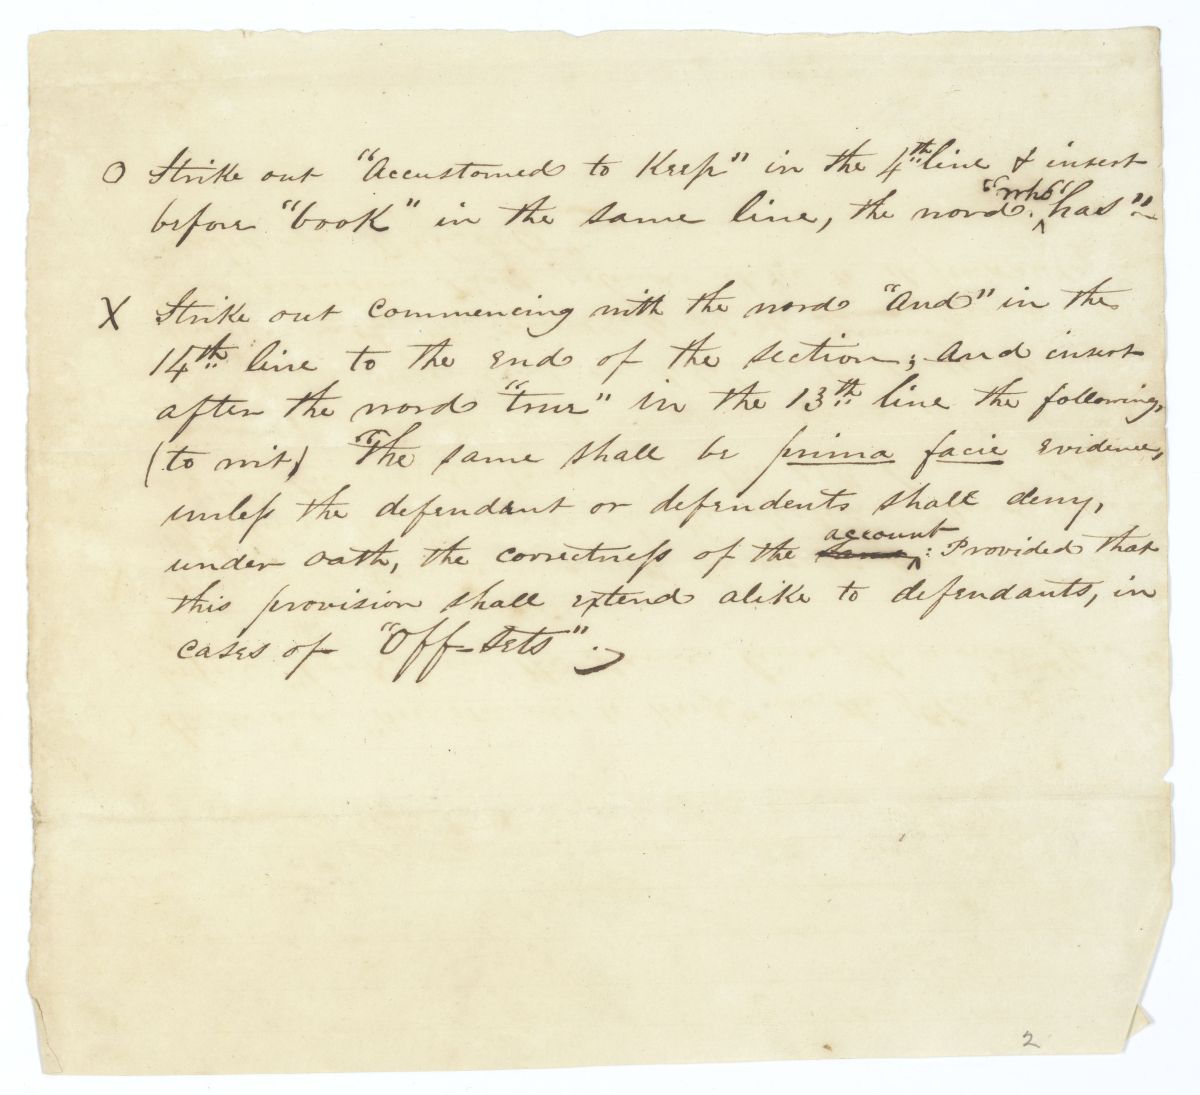 O Strike out "Accustomed to Keep" in the 4th line & insert
before "book" in the same line, the word "who" "has"
X Strike out commencing with the word "And" in the
14th line to the End of the section; And insert
after the word "true" in the 13th line the following,
(to wit) "The same shall be prima facie Evidence,
unless the defendant or defendents shall deny,
under oath, the correctness of the same account: Provided that
this provision shall extend alike to defendants, in
cases of "Off-Sets".
2